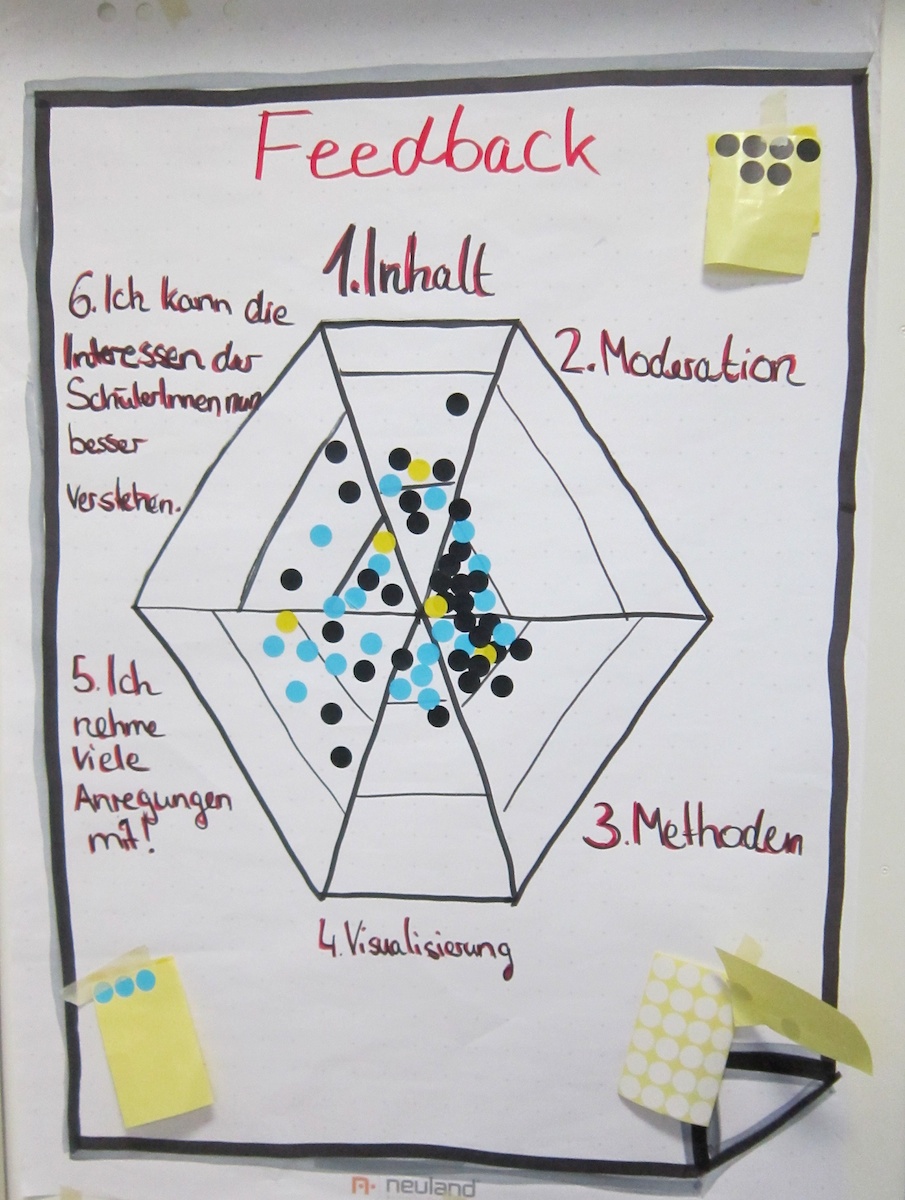 Feedback
1. Inhalt
2. Moderation
3. Methoden
4. Visualisierung
5. Ich
nehme
Viele
Anregungen
mit!
6. Ich kann die
Interessen der
SchülerInnen nun
besser
verstehen.
neuland